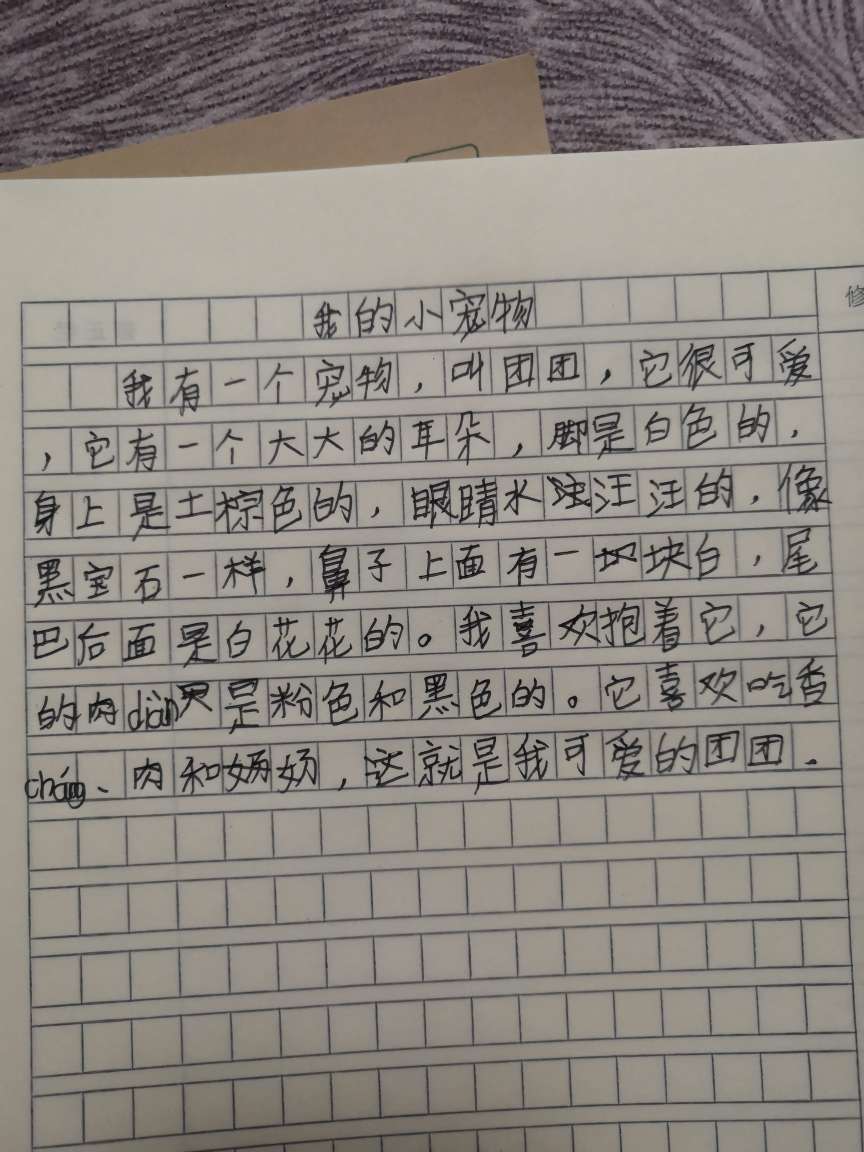 我的小宠物
我有一个宠物，叫团团，它很可爱
，它有一个大大的耳朵，脚是白色的，
身上是土棕色的，眼睛水汪汪的，像
黑宝石一样，鼻子上面有一块白，尾
巴后面是白花花的。我喜欢抱着它，它
的肉diàn是粉色和黑色的。它喜欢吃香
cháng、肉和奶，这就是我可爱的团团．
修